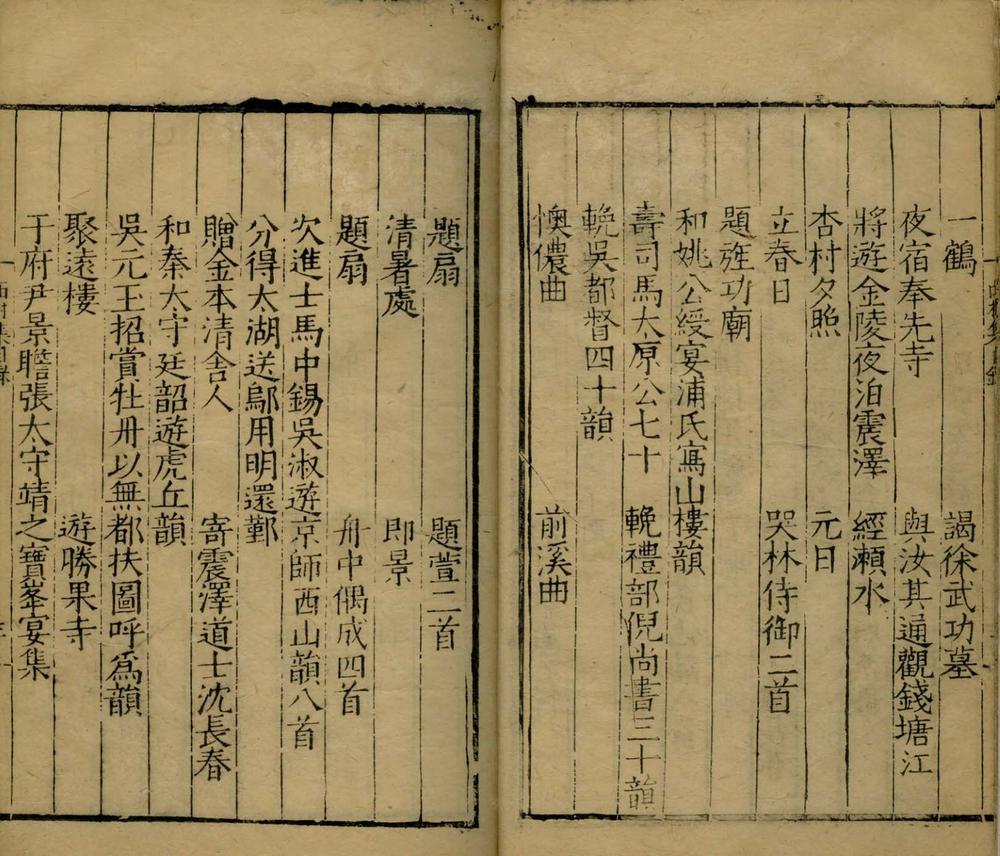 一鶴　謁徐武功墓
夜宿奉先寺　與汝其通觀錢塘江
將遊金陵夜泊震澤　經瀨水
杏村夕照　元日
立春日　哭林侍御二首
題旌功廟
和姚公綬宴浦氏寫山樓韻
壽司馬太原公七十　輓禮部倪尚書三十韻
輓吳都督四十韻
懊儂曲　前溪曲
題扇　題萱二首
清暑處　即景
題扇　舟中偶成四首
次進士馬中錫吳淑遊京師西山韻八首
分得太湖送鄔用明還鄞
贈金本清舍人　寄震澤道士沈長春
和秦太守廷韶遊虎丘韻
吳元玉招賞牡丹以無都扶圖呼爲韻
聚遠樓　遊勝果寺
于府尹景瞻張太守靖之寶峯宴集